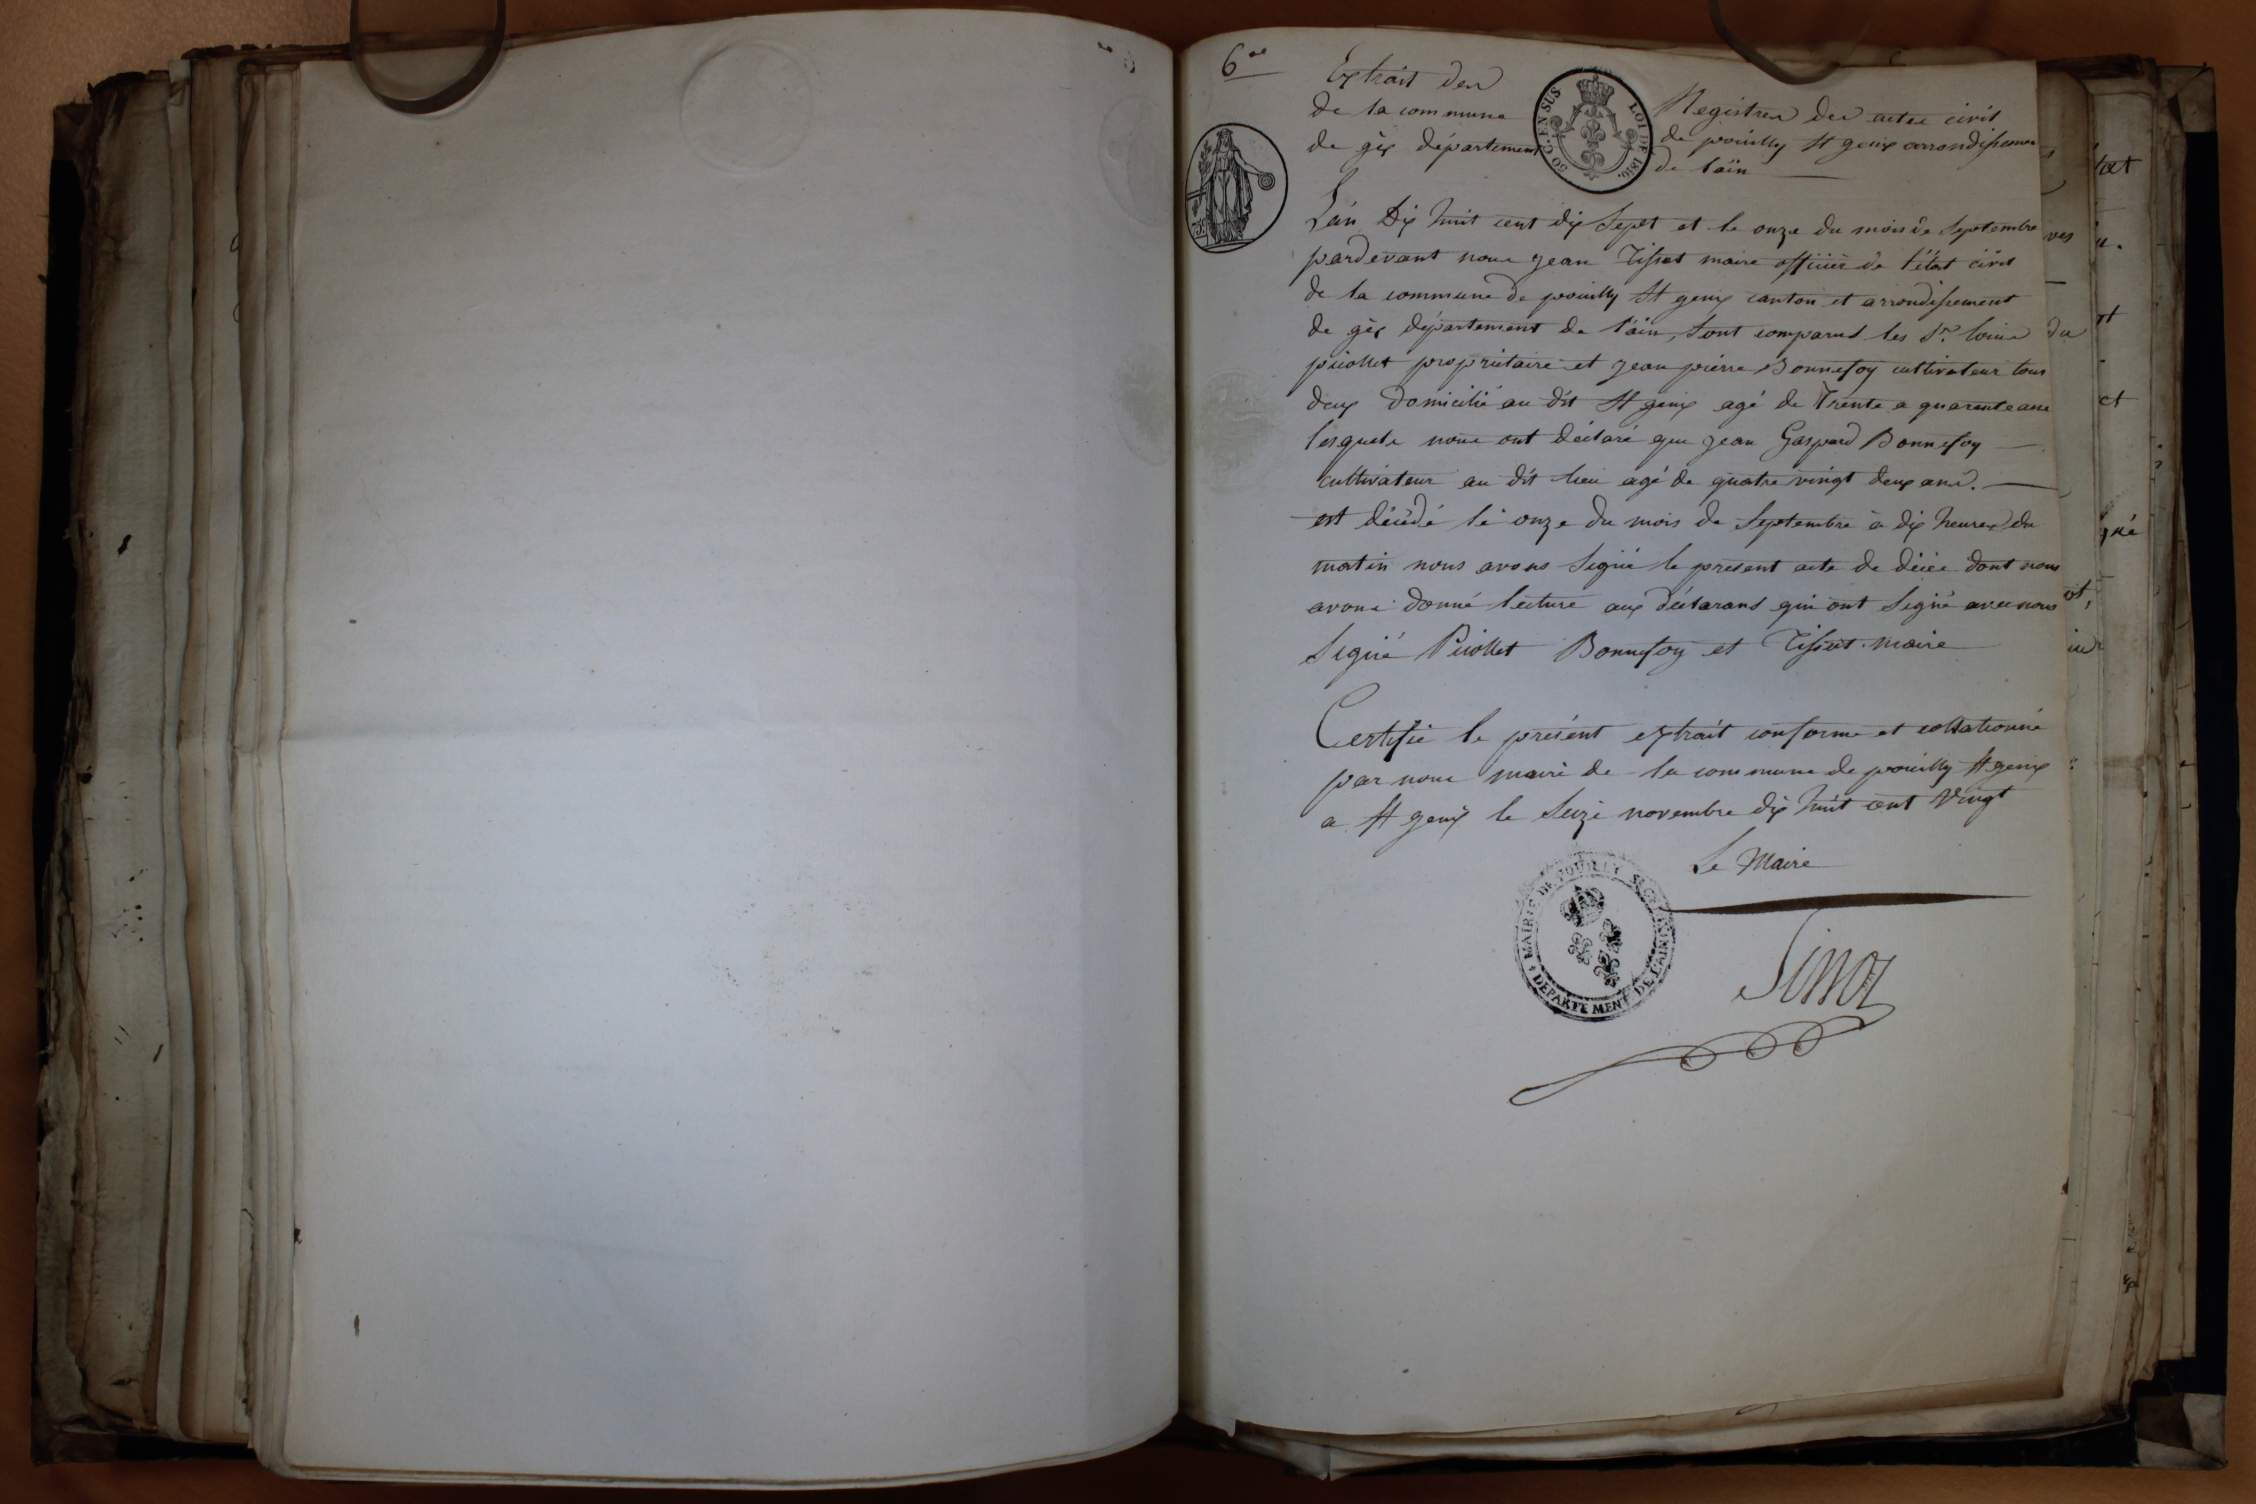 6
Extrait des Registres des actes civil
de la commune de pouilly St genix arrondissement
de gèx département de l'ain
30 C. EN SUS
LOI DE 1816.
L'an Dix huit cent dix Sept et le onze du mois de Septembre
pardevant nous jean Tisset maire officier de l'état civil
de la commune de pouilly St genix canton et arrondissement
de gèx département de l'ain, Sont comparus les Sr. louis
picollet propriétaire et jean pierre Bonnefoy cultivateur tous
deux domicilié au dit St genix agé de Trente a quarente ans
lesquels nous ont déclaré que jean Gaspard Bonnefoy
cultivateur au dit lieu agé de quatre vingt deux ans.
est décédé le onze du mois de Septembre à dix heures du
matin nous avons Signé le présent acte de décès dont nous
avons donné lecture aux déclarans qui ont Signé avec nous
Signé Picollet Bonnefoy et Tisset maire
Certifié le présent extrait conforme et collationné
par nous maire de la commune de pouilly St genix
a St genix le Seize novembre dix huit cent Vingt
Le Maire
MAIRIE DE POUILLY
DEPARTEMENT DE L'AIN